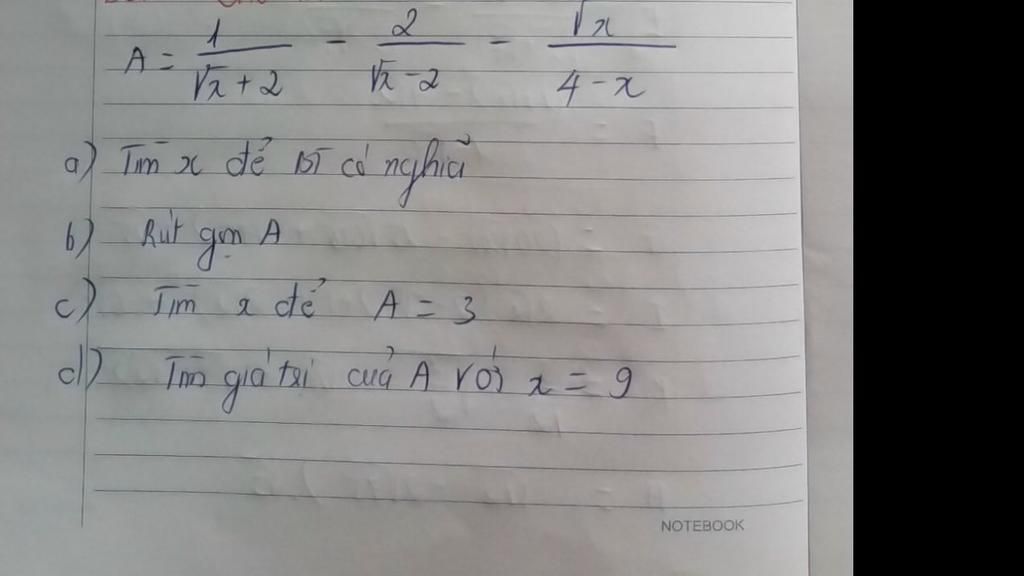 A = 1/(√x + 2) - 2/(√x - 2) - √x/(4 - x)
a) Tìm x để BT có nghĩa
b) Rút gọn A
c) Tìm x để A = 3
d) Tìm giá trị của A với x = 9
NOTEBOOK